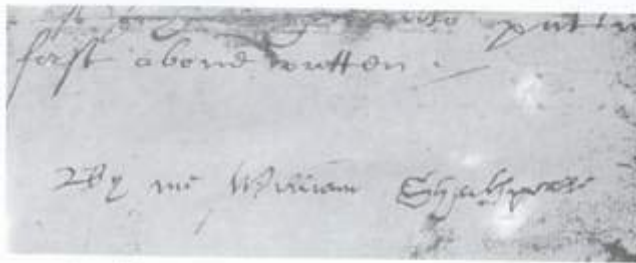 put in
first above written .
By me William Shakspeare